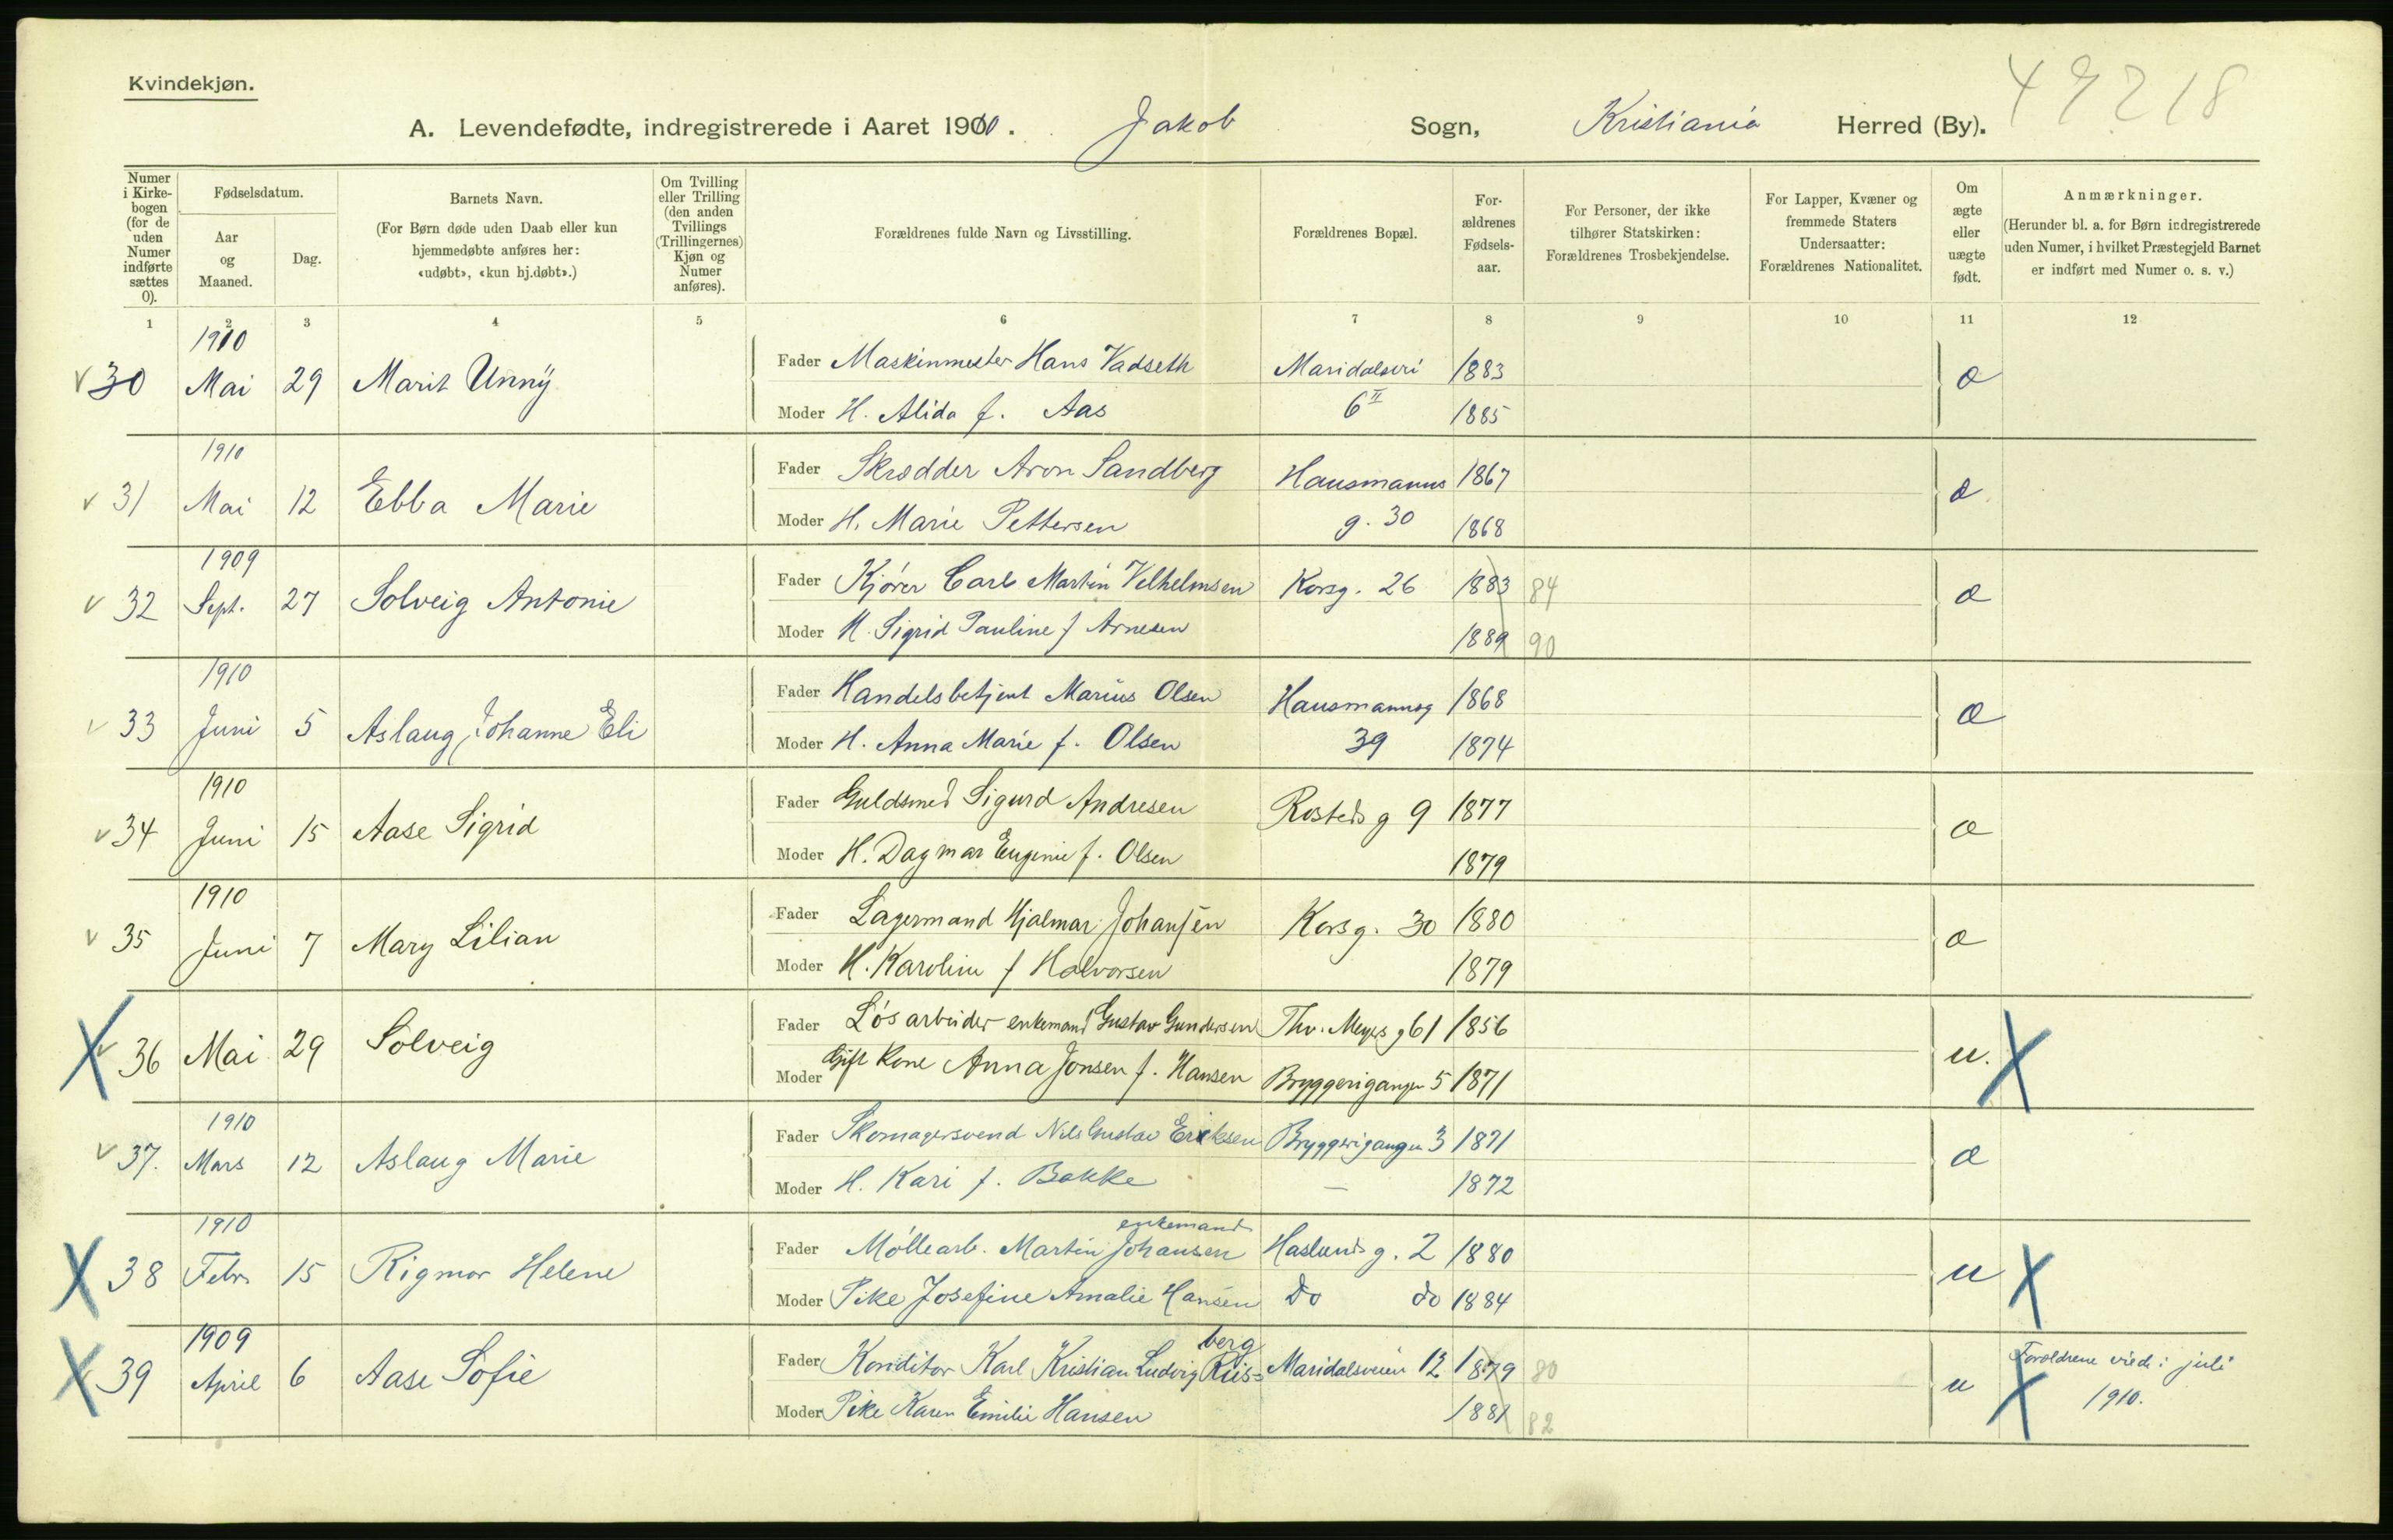 Kvindekjøn.
47218
A. Levendefødte, indregistrerede i Aaret 1910. Jakob Sogn, Kristiania Herred (By).
Numer i Kirkebogen (for de uden Numer indførte sættes 0).
Fødselsdatum.
Aar og Maaned.
Dag.
Barnets Navn.
(For Børn døde uden Daab eller kun hjemmedøbte anføres her: «udøbt», «kun hj.døbt».)
Om Tvilling eller Trilling (den anden Tvillings (Trillingernes) Kjøn og Numer anføres).
Forældrenes fulde Navn og Livsstilling.
Forældrenes Bopæl.
Forældrenes Fødselsaar.
For Personer, der ikke tilhører Statskirken: Forældrenes Trosbekjendelse.
For Lapper, Kvæner og fremmede Staters Undersaatter: Forældrenes Nationalitet.
Om ægte eller uægte født.
Anmærkninger.
(Herunder bl. a. for Børn indregistrerede uden Numer, i hvilket Præstegjeld Barnet er indført med Numer o. s. v.)
1 2 3 4 5 6 7 8 9 10 11 12
1910
v 30 Mai 29 Marit Unny Fader Maskinmester Hans Vadseth Maridalsvei 1883 æ
Moder H. Alida f. Aas 6 II 1885
1910
v 31 Mai 12 Ebba Marie Fader Skrædder Aron Sandberg Hausmanns 1867 æ
Moder H. Marie Pettersen g. 30 1868
1909
v 32 Sept. 27 Solveig Antonie Fader Kjører Carl Martin Vilhelmsen Korsg. 26 1883 84 æ
Moder H. Sigrid Pauline f Arnesen 1889 90
1910
v 33 Juni 5 Aslaug Johanne Eli Fader Handelsbetjent Marius Olsen Hausmannsg 1868 æ
Moder H. Anna Marie f. Olsen 39 1874
1910
v 34 Juni 15 Aase Sigrid Fader Guldsmed Sigurd Andresen Rosteds g 9 1877 æ
Moder H. Dagmar Eugenie f. Olsen 1879
1910
v 35 Juni 7 Mary Lilian Fader Lagermand Hjalmar Johansen Korsg. 30 1880 æ
Moder H. Karoline f Halvorsen 1879
X v 36 Mai 29 Solveig Fader Løsarbeider enkemand Gustav Gundersen Thv. Meyers g 61 1856 u. X
Moder Gift Kone Anna Jonsen f. Hansen Bryggerigangen 5 1871
1910
v 37. Mars 12 Aslaug Marie Fader Skomagersvend Nils Gustav Eriksen Bryggerigangen 3 1871 æ
Moder H. Kari f. Bakke — 1872
1910
enkemand
X 38 Febr. 15 Rigmor Helene Fader Møllearb. Martin Johansen Haslunds g. 2 1880 u X
Moder Pike Josefine Amalie Hansen Do do 1884
1909
berg
X 39 April 6 Aase Sofie Fader Konditor Karl Kristian Ludvig Riis= Maridalsveien 12 1879 80 u X Forældrene viede i juli
Moder Pike Karen Emilie Hansen 1881 82 1910.